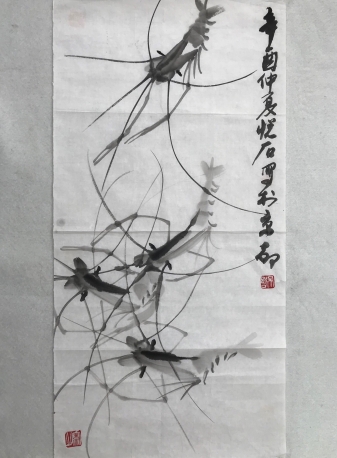 辛酉仲夏悦石写於京